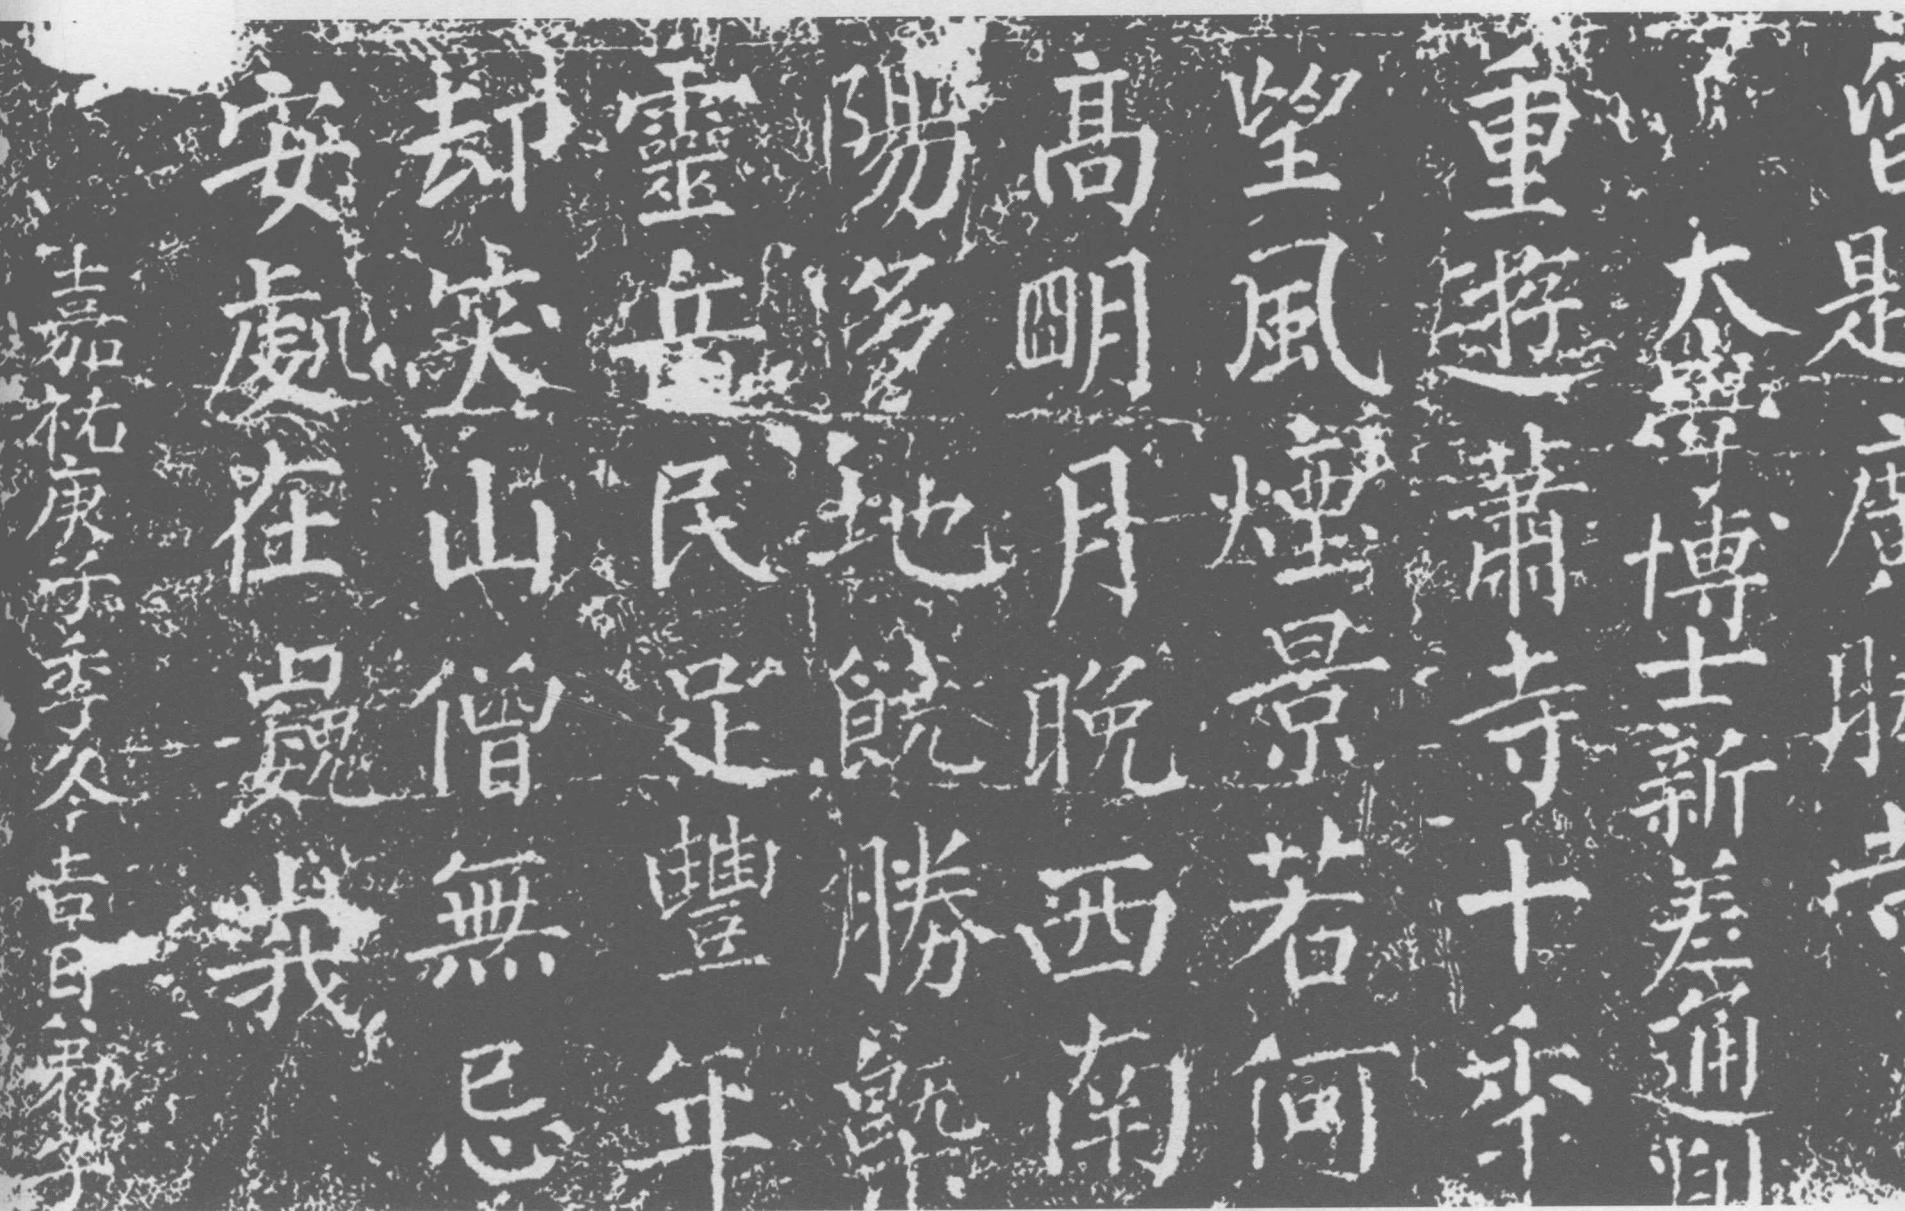 是廣勝
太學博士新差通判
重遊蕭寺十年
望風煙景若何
高明月晚西南
陽多地饒勝槩
靈岳民足豐年
却笑山僧無忌
安處在巍峩
嘉祐庚子季冬吉日弟子